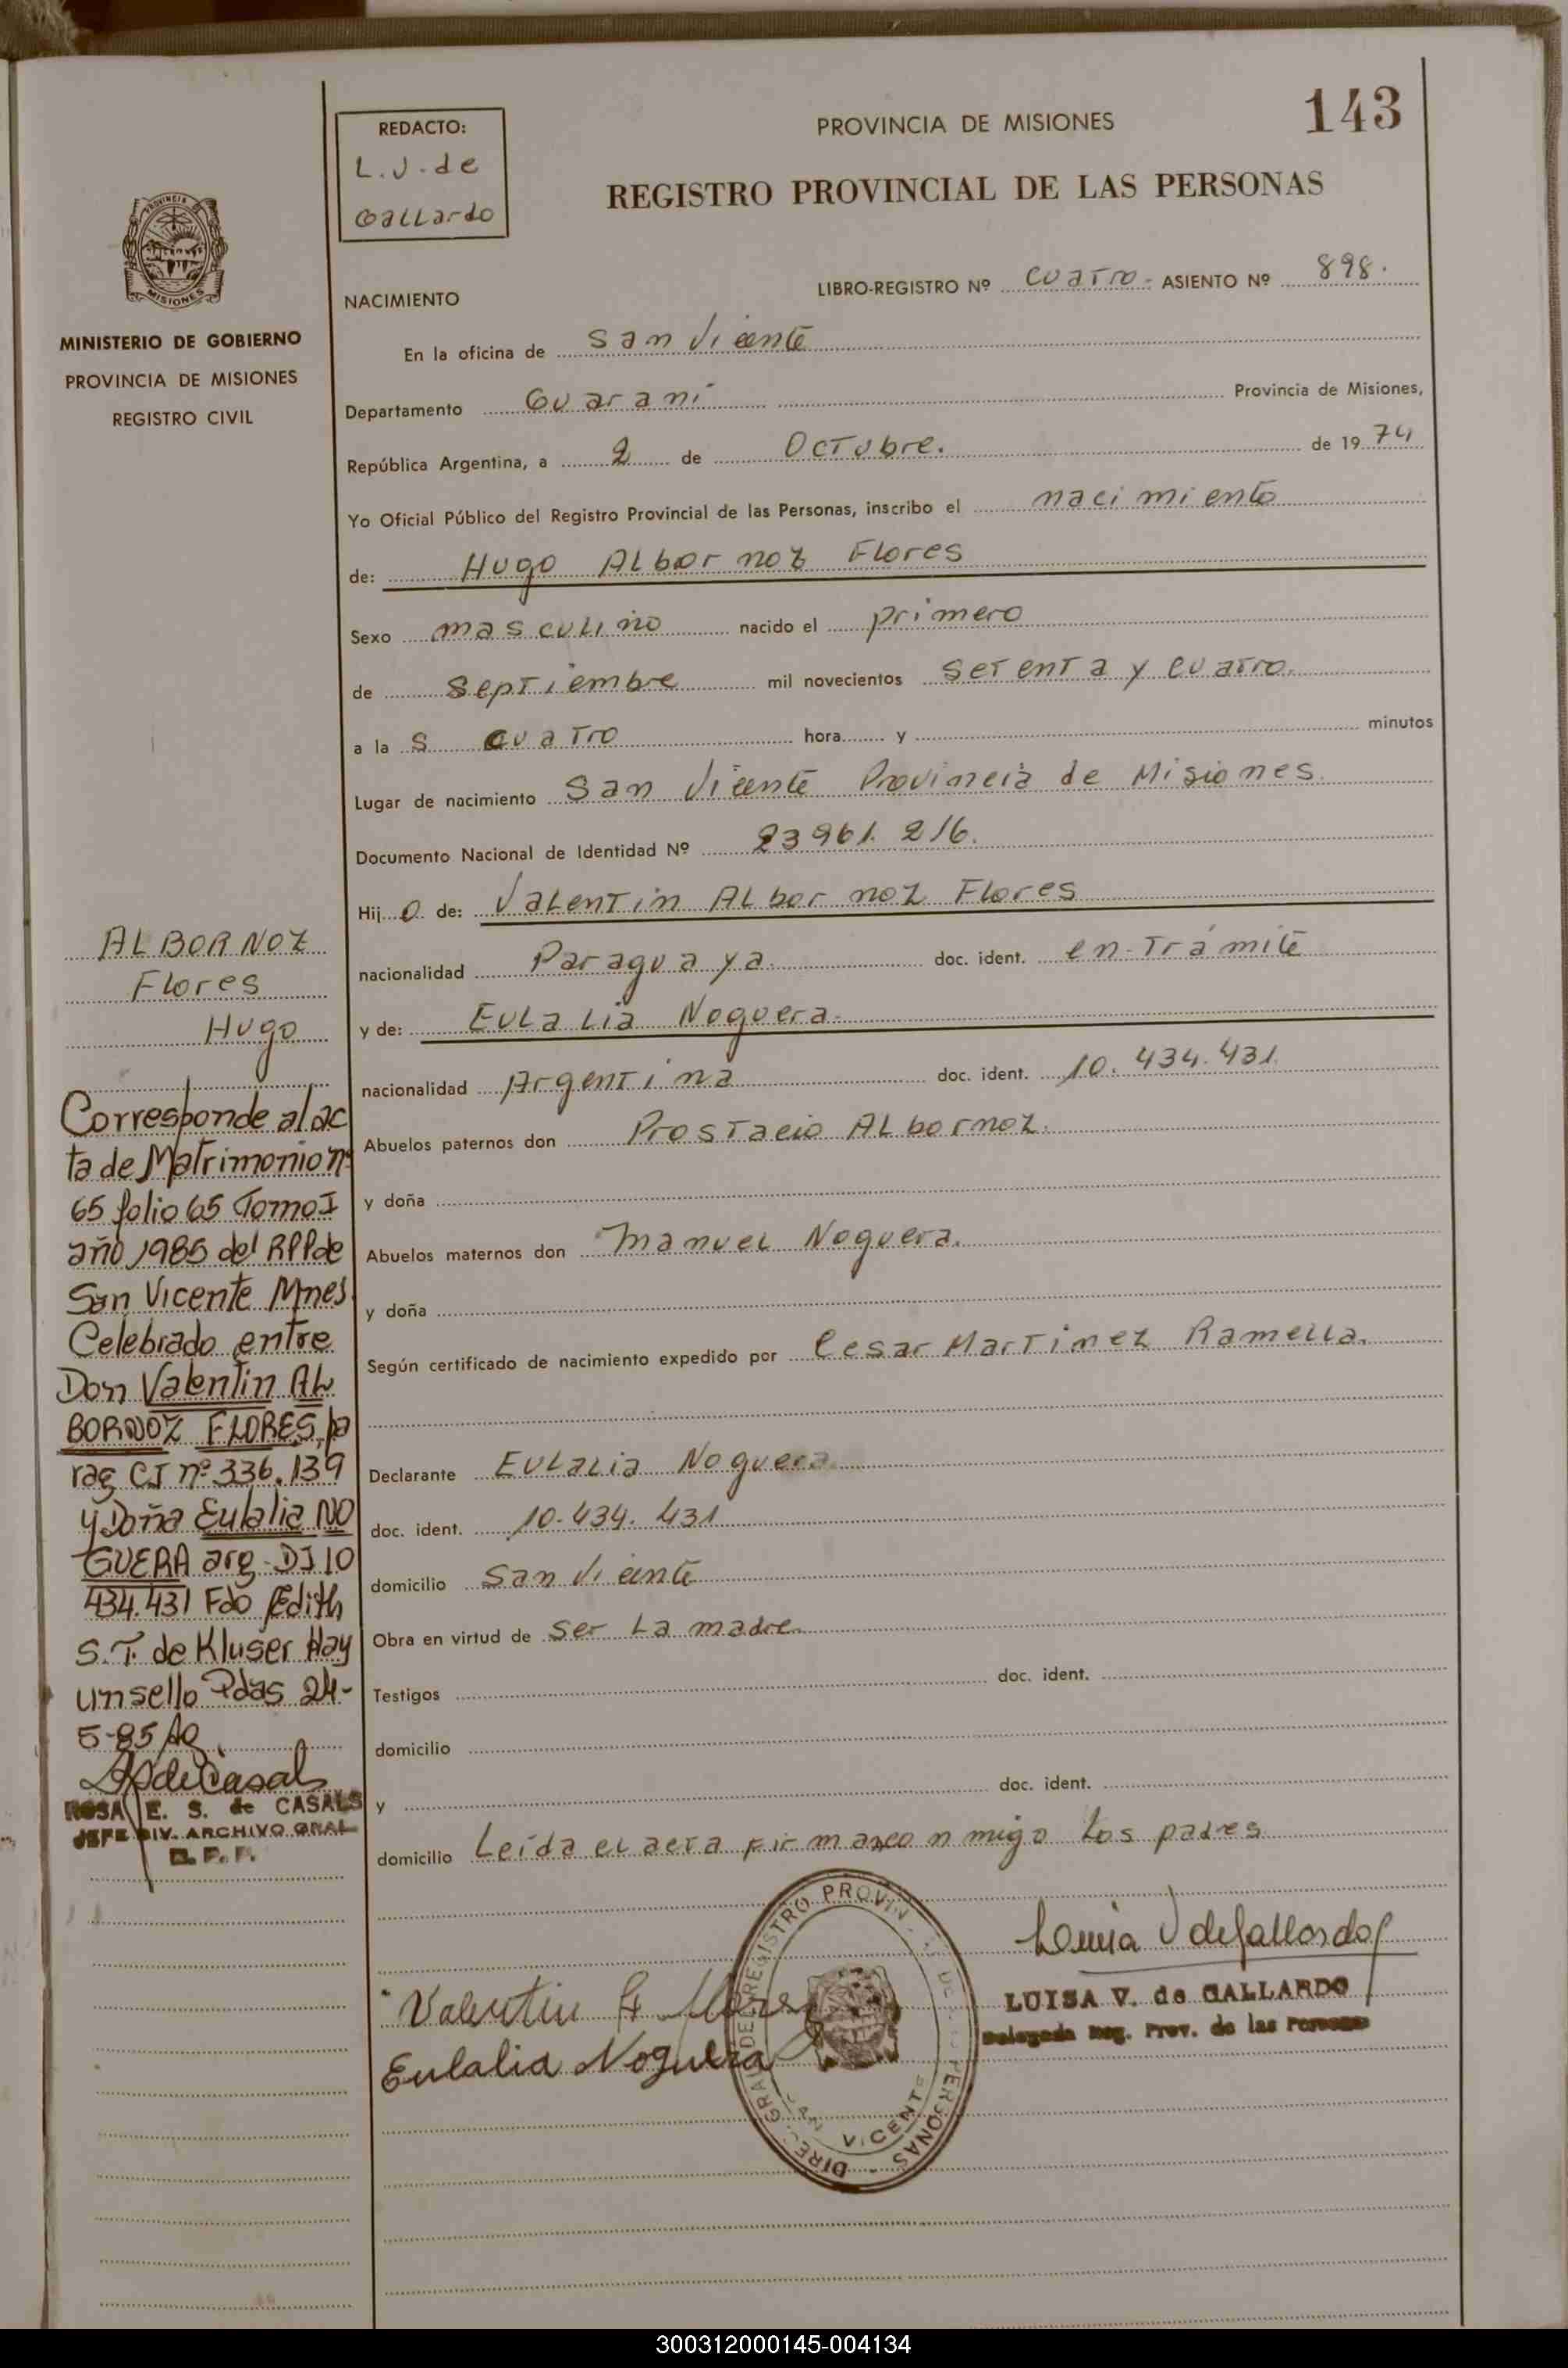 143
REDACTO:
L.V. de
Gallardo
PROVINCIA DE MISIONES
REGISTRO PROVINCIAL DE LAS PERSONAS
PROVINCIA DE
MISIONES
MINISTERIO DE GOBIERNO
PROVINCIA DE MISIONES
REGISTRO CIVIL
NACIMIENTO
LIBRO-REGISTRO Nº cuatro- ASIENTO Nº 898.
En la oficina de San Vicente
Departamento Guaraní Provincia de Misiones,
República Argentina, a 2 de Octubre. de 1974
Yo Oficial Público del Registro Provincial de las Personas, inscribo el nacimiento
de: Hugo Albornoz Flores
Sexo masculino nacido el primero
de Septiembre mil novecientos setenta y cuatro.
a las cuatro hora y minutos
Lugar de nacimiento San Vicente Provincia de Misiones.
Documento Nacional de Identidad Nº 23961.216.
Hijo de: Valentin Albornoz Flores
nacionalidad Paraguaya. doc. ident. en-Trámite
y de: Eulalia Noguera.
nacionalidad Argentina doc. ident. 10.434.431
Abuelos paternos don Prostacio Albornoz.
y doña
Abuelos maternos don Manuel Noguera.
y doña
Según certificado de nacimiento expedido por Cesar Martinez Ramella.
Declarante Eulalia Noguera
doc. ident. 10.434.431
domicilio San Vicente
Obra en virtud de ser la madre.
Testigos doc. ident.
domicilio
y doc. ident.
domicilio Leída el acta firman conmigo los padres
ALBORNOZ
Flores
Hugo
Corresponde al ac
ta de Matrimonio nº
65 folio 65 Tomo I
año 1985 del RPP de
San Vicente Mnes
Celebrado entre
Don Valentin AL
BORNOZ FLORES, pa
rag CI nº 336.139
y Doña Eulalia NO
GUERA arg. DI 10
434.431 Fdo Edith
S.T. de Kluser Hay
un sello Pdas 24-
5-85
ROSA E. S. de CASALS
JEFE DIV. ARCHIVO GRAL
R. P. P.
Valentin A. Flores
Eulalia Noguera
Luisa V de Gallardo
LUISA V. de GALLARDO
Delegada Reg. Prov. de las Personas
DIREC. GRAL DEL REGISTRO PROVIN. DE LAS PERSONAS
SAN VICENTE
300312000145-004134